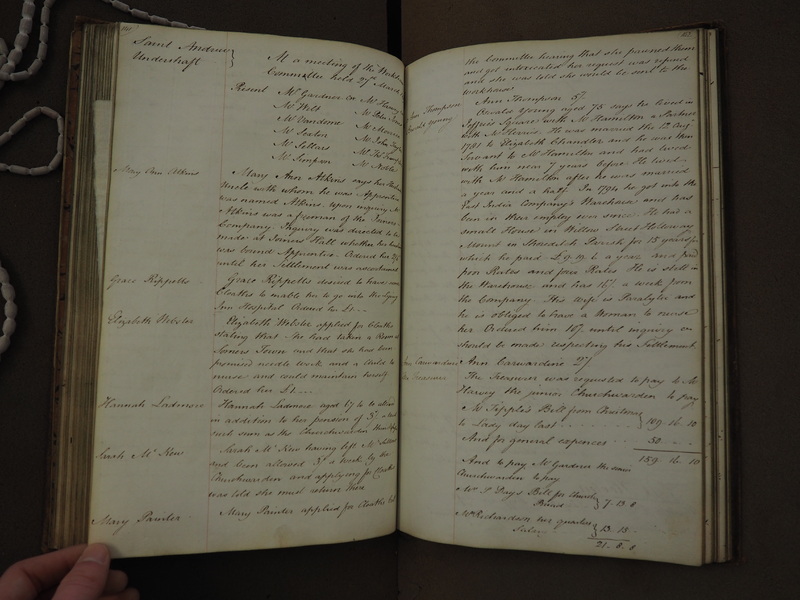 Saint Andrew
Undershaft
At a meeting of the Workhouse
Committee held 27th March
Present Mr Gardner
Mr Wilt
Mr Vandome
Mr Sexton
Mr Sellars
Mr Simpson
Mr Harvey
Mr Morris
Mr John
Mr Noble
Mary Ann Atkins
Mary Ann Atkins says her
Uncle with whom he was Apprentice
was named Atkins. Upon inquiry
Atkins was a freeman of the Joiners
Company. Inquiry was directed to be
made at Joiners Hall whether her
was bound Apprentice. Ordered her
until her Settlement was ascertained
Grace Rippetts
Grace Rippetts desired to have some
Cloaths to enable her to go into the Lying
Inn Hospital Ordered her £1
Elizabeth Webster
Elizabeth Webster applied for Cloaths
stating that she had taken a Room at
Somers Town and that she had been
promised needle work and a Child to
nurse and could maintain herself
Ordered her £1
Hannah Ladmore
Hannah Ladmore aged 67 to be allowed
in addition to her pension of 3s
such sum as the Churchwarden
Sarah Mc Kew
Sarah Mc Kew having left
and been allowed 3s a week by the
Churchwarden and applying for Cloaths
was told she must return there
Mary Painter
Mary Painter applied for Cloaths but
the Committee hearing that she pawned them
and got intoxicated her request was refused
and she was told she would be sent to the
workhouse
Ann Thompson
Ann Thompson 5/.
Oswald Young
Oswald Young aged 75 says he lived in
Jeffries Square with Mr Hamilton a Partner
with Mr Herries. He was married the 12 Augt
1781 to Elizabeth Chandler and he was then
Servant to Mr Hamilton and had lived
with him near 7 years before He lived
with Mr Hamilton after he was married
a year and a half. In 1794 he got into the
East India Company's Warehouse and has
been in their employ ever since. He had a
small House in Willow Street Holloway
Mount in Shoreditch Parish for 15 years for
which he paid £9.19.6 a year and paid
poor Rates and other Rates. He is still in
the Warehouse and has 16/. a week from
the Company. His wife is Paralytic and
he is obliged to have a Woman to nurse
her Ordered him 10/. until inquiry
should be made respecting his Settlement
Ann Carwardine
Ann Carwardine 2/.
The Treasurer
The Treasurer was requested to pay to Mr
Harvey the junior Churchwarden to pay
Mr Tipple's Bill from Christmas
to Lady day last 109 . 16 . 10
And for general expences 50 . .
159 . 16 . 10
And to pay Mr Gardner the senior
Churchwarden to pay
Mr Day's Bill for Church
7 . 13 . 0
Mrs Richardson her quarters
Salary 13 . 15 .
21 . 8 . 0